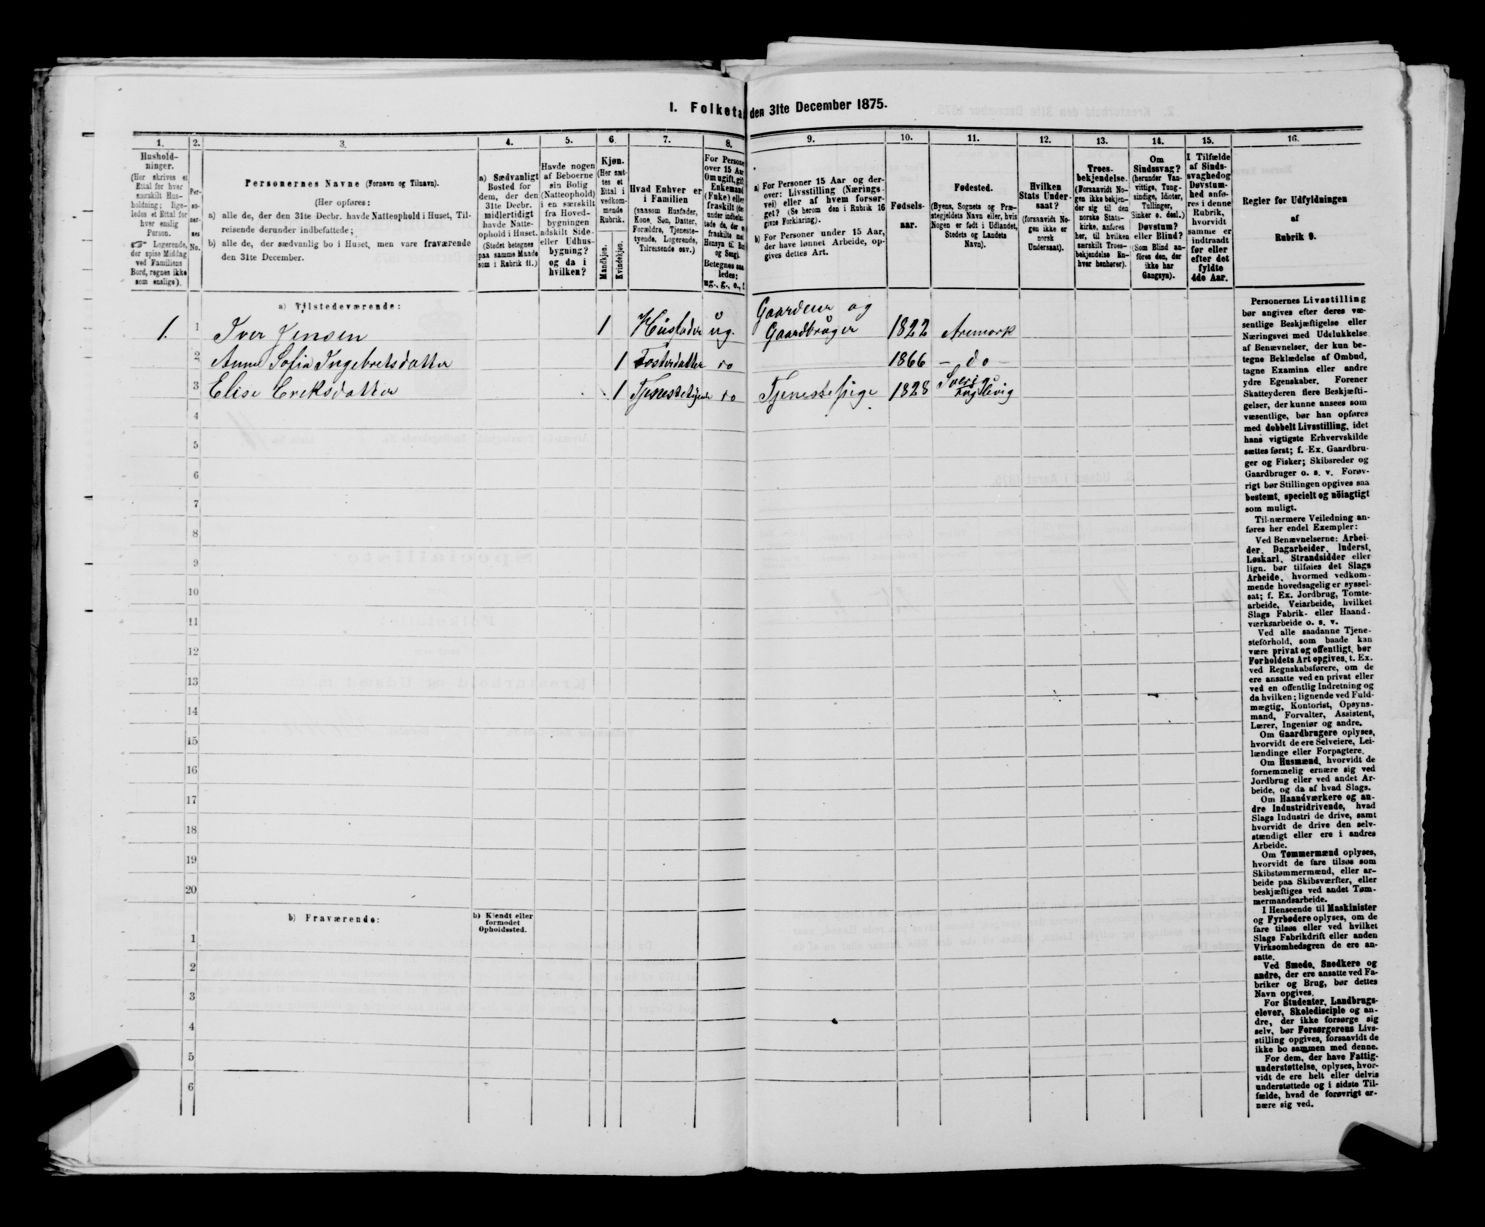 I. Folketa den 31te December 1875.
1. 2. 3. 4. 5. 6. 7. 8. 9. 10. 11. 12. 13. 14. 15. 16.
Hushold-
ninger.
(Her skrives et
Ettal for hver
særskilt Hus-
holdning; lige-
ledes et Ettal for
hver enslig
Person.
Logerende,
der spise Middag
ved Familiens
Bord, regnes ikke
som enslige).
Per-
so-
ner-
nes
No.
Personernes Navne (Fornavn og Tilnavn).
(Her opføres:
a) alle de, der den 31te Decbr. havde Natteophold i Huset, Til-
reisende derunder indbefattede;
b) alle de, der sædvanlig bo i Huset, men vare fraværende
den 31te December.
a) Sædvanligt
Bosted for
dem, der den
31te Decbr.
midlertidigt
havde Natte-
ophold i Huset.
(Stedet betegnes
paa samme Maade
som i Rubrik 11.)
Havde nogen
af Beboerne
sin Bolig
(Natteophold)
i en særskilt
fra Hoved-
bygningen
adskilt Side-
eller Udhus-
bygning?
og da i
hvilken?
Kjøn.
(Her sæt-
tes et
Ettal i
vedkom-
mende
Rubrik.
Mandkjøn.
Kvindekjøn.
Hvad Enhver er
i Familien
(saasom Husfader,
Kone, Søn, Datter,
Forældre, Tjeneste-
tyende, Logerende,
Tilreisende osv.)
For Persone
over 15 Aar
Om ugift, gif
Enkemand
(Enke) elle
fraskilt (de
under indbefat-
tede de, der e
fraskilte me
Hensyn til Bo
og Seng).
Betegnes saa
ledes:
ug., g., e., f
a) For Personer 15 Aar og der-
over: Livsstilling (Nærings-
vei) eller af hvem forsør-
get? (Se herom den i Rubrik 16
givne Forklaring).
b) For Personer under 15 Aar,
der have lønnet Arbeide, op-
gives dettes Art.
Fødsels-
aar.
Fødested.
(Byens, Sognets og Præ-
stegjeldets Navn eller, hvis
Nogen er født i Udlandet,
Stedets og Landets
Navn).
Hvilken
Stats Under-
saat?
(forsaavidt No-
gen ikke er
norsk
Undersaat).
Troes-
bekjendelse.
(Forsaavidt No-
gen ikke bekjen-
der sig til den
norske Stats-
kirke, anføres
her, til hvilken
særskilt Troes-
bekjendelse En-
hver henhører).
Om
Sindssvag?
(herunder Van-
vittige, Tung-
sindige, Idioter,
Tullinger,
Sinker o. desl.)
Døvstum?
eller Blind?
(Som Blind an-
føres den, der
ikke har
Gangsyn).
I Tilfælde
af Sinds-
svaghed og
Døvstum-
hed anfø-
res i denne
Rubrik,
hvorvidt
samme er
indtraadt
før eller
efter det
fyldte
4de Aar.
Regler for Udfyldningen
af
Rubrik 9.
a) Tilstedeværende:
1. 1 Iver Jensen 1 Husfader ug. Gaardeier og Gaardbruger 1822 Aremark
2 Anne Sofia Ingebretsdatter 1 Fosterdatter do 1866 - do -
3 Elise Eriksdatter 1 Tjenestetyende do Tjenestepige 1828
4
5
6
7
8
9
10
11
12
13
14
15
16
17
18
19
20
b) Fraværende:
b) Kjendt eller
formodet
Opholdssted.
1
2
3
4
5
6
Personernes Livsstilling
bør angives efter deres væ-
sentlige Beskjæftigelse eller
Næringsvei med Udelukkelse
af Benævnelser, der kun be-
tegne Beklædelse af Ombud,
tagne Examina eller andre
ydre Egenskaber. Forener
Skatteyderen flere Beskjæfti-
gelser, der kunne ansees som
væsentlige, bør han opføres
med dobbelt Livsstilling, idet
hans vigtigste Erhvervskilde
sættes først; f. Ex. Gaardbru-
ger og Fisker; Skibsreder og
Gaardbruger o. s. v. Forøv-
rigt bør Stillingen opgives saa
bestemt, specielt og nöiagtigt
som muligt.
Til nærmere Veiledning an-
føres her endel Exempler:
Ved Benævnelserne: Arbei-
der, Dagarbeider, Inderst,
Løskarl, Strandsidder eller
lign. bør tilføies det Slags
Arbeide, hvormed vedkom-
mende hovedsagelig er syssel-
sat; f. Ex. Jordbrug, Tomte-
arbeide, Veiarbeide, hvilket
Slags Fabrik- eller Haand-
værksarbeide o. s. v.
Ved alle saadanne Tjene-
steforhold, som baade kan
være privat og offentligt, bør
Forholdets Art opgives, t. Ex.
ved Regnskabsførere, om de
ere ansatte ved en privat eller
ved en offentlig Indretning og
da hvilken; lignende ved Fuld-
mægtig, Kontorist, Opsyns-
mand, Forvalter, Assistent,
Lærer, Ingeniør og andre.
Om Gaardbrugere oplyses,
hvorvidt de ere Selveiere, Lei-
lændinge eller Forpagtere.
Om Husmænd, hvorvidt de
fornemmelig ernære sig ved
Jordbrug eller ved andet Ar-
beide, og da af hvad Slags.
Om Haandværkere og an-
dre Industridrivende, hvad
Slags Industri de drive, samt
hvorvidt de drive den selv-
stændigt eller ere i andres
Arbeide.
Om Tømmermænd oplyses,
hvorvidt de fare tilsøs som
Skibstømmermænd, eller ar-
beide paa Skibsværfter, eller
beskjæftiges ved andet Tøm-
mermandsarbeide.
I Henseende til Maskinister
og Fyrbødere oplyses, om de
fare tilsøs eller ved hvilket
Slags Fabrikdrift eller anden
Virksomhedsgren de ere an-
satte.
Ved Smede, Snedkere og
andre, der ere ansatte ved Fa-
briker og Brug, bør dettes
Navn opgives.
For Studenter, Landbrugs-
elever, Skoledisciple og an-
dre, der ikke forsørge sig
selv, bør Forsørgerens Livs-
stilling opgives, forsaavidt de
ikke bo sammen med denne.
For dem, der have Fattig-
understøttelse, oplyses, hvor-
vidt de ere helt eller delvis
understøttede og i sidste Til-
fælde, hvad de forøvrigt er-
nære sig ved.